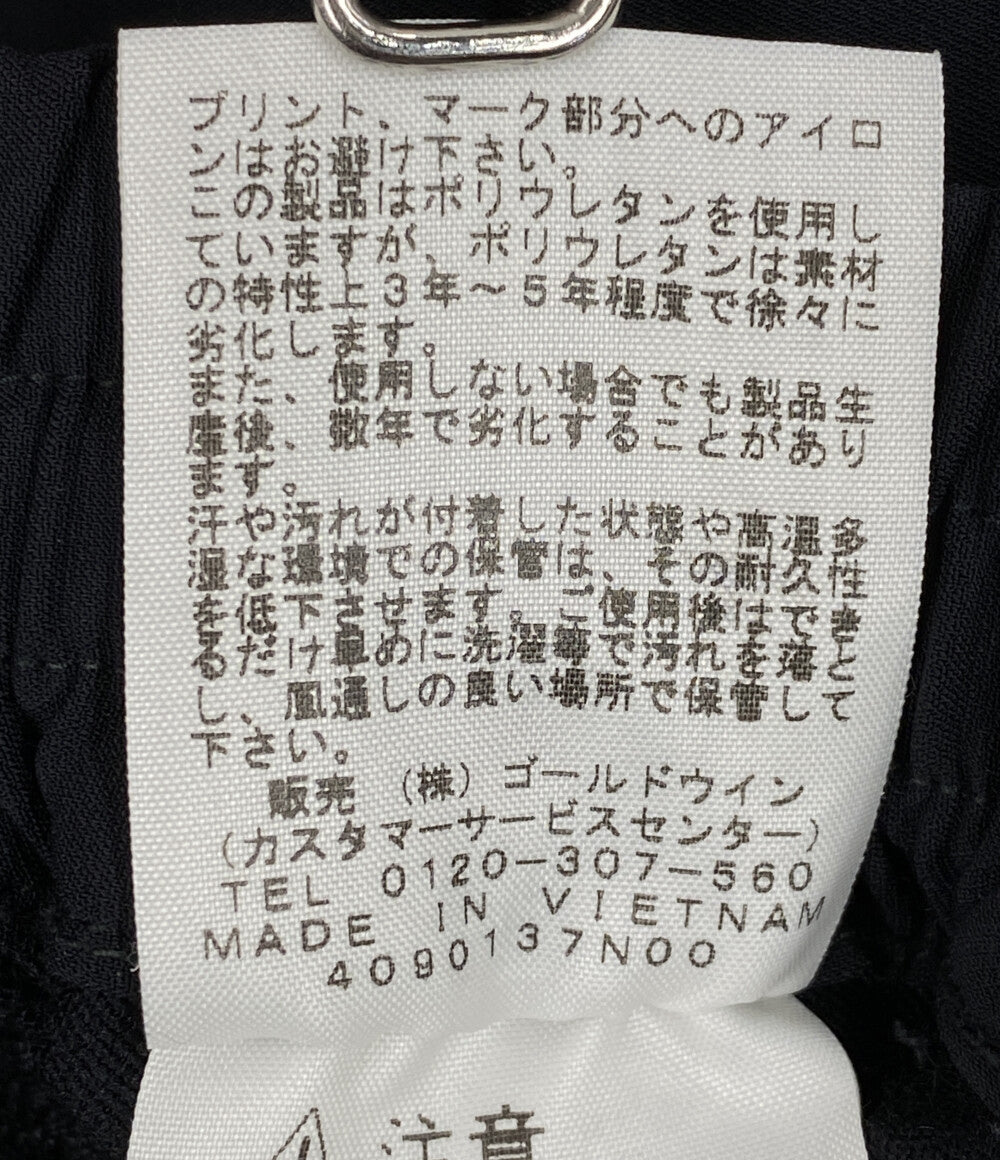 プリント、マーク部分へのアイロ
ンはお避け下さい。
この製品はポリウレタンを使用し
ていますが、ポリウレタンは素材
の特性上3年～5年程度で徐々に
劣化します。
また、使用しない場合でも製品生
産後、数年で劣化することがあり
ます。
汗や汚れが付着した状態や高温多
湿な環境での保管は、その耐久性
を低下させます。ご使用後はでき
るだけ早めに洗濯等で汚れを落と
し、風通しの良い場所で保管して
下さい。
販売 (株)ゴールドウイン
(カスタマーサービスセンター)
TEL 0120-307-560
MADE IN VIETNAM
4090137N00
注意